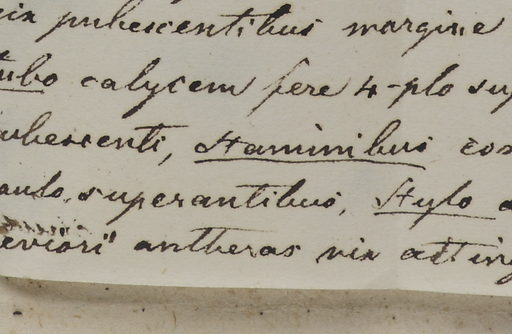 vix pubescentibus margine
tubo calycem fere 4-plo sup
pubescenti, staminibus co
paulo superantibus, stylo
breviori antheras vix atting